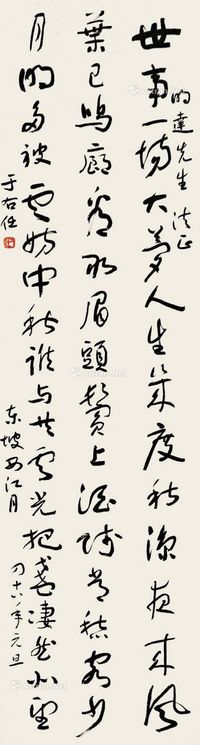 明達先生法正
世事一場大夢人生幾度秋涼夜来風
葉已鳴廊看取眉頭鬢上酒賤常愁客少
月明多被雲妨中秋誰与共孤光把盞淒然北望
東坡西江月
年元旦
于右任